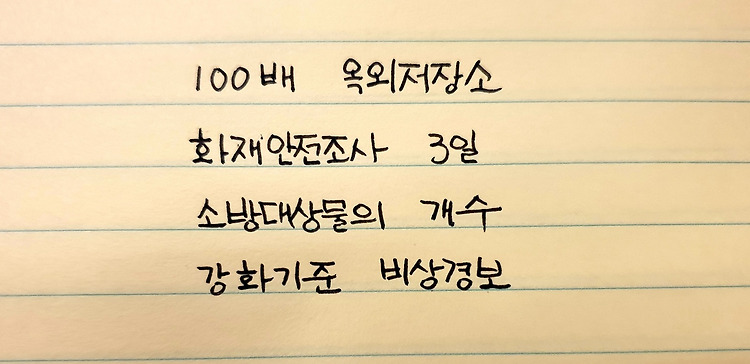 100배 옥외저장소
화재안전조사 3일
소방대상물의 개수
강화기준 비상경보